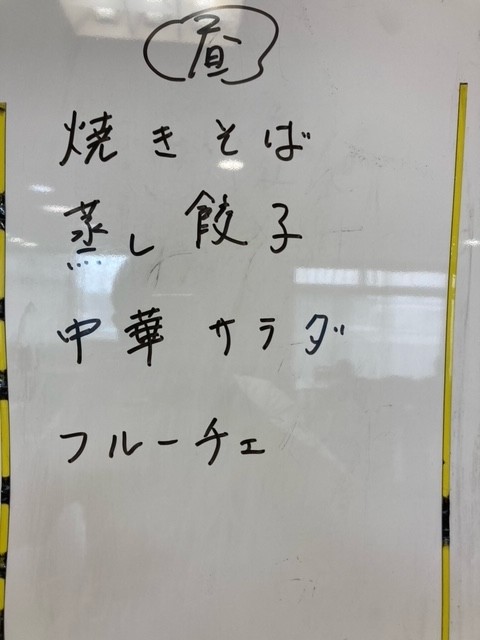 昼
焼きそば
蒸し餃子
中華サラダ
フルーチェ